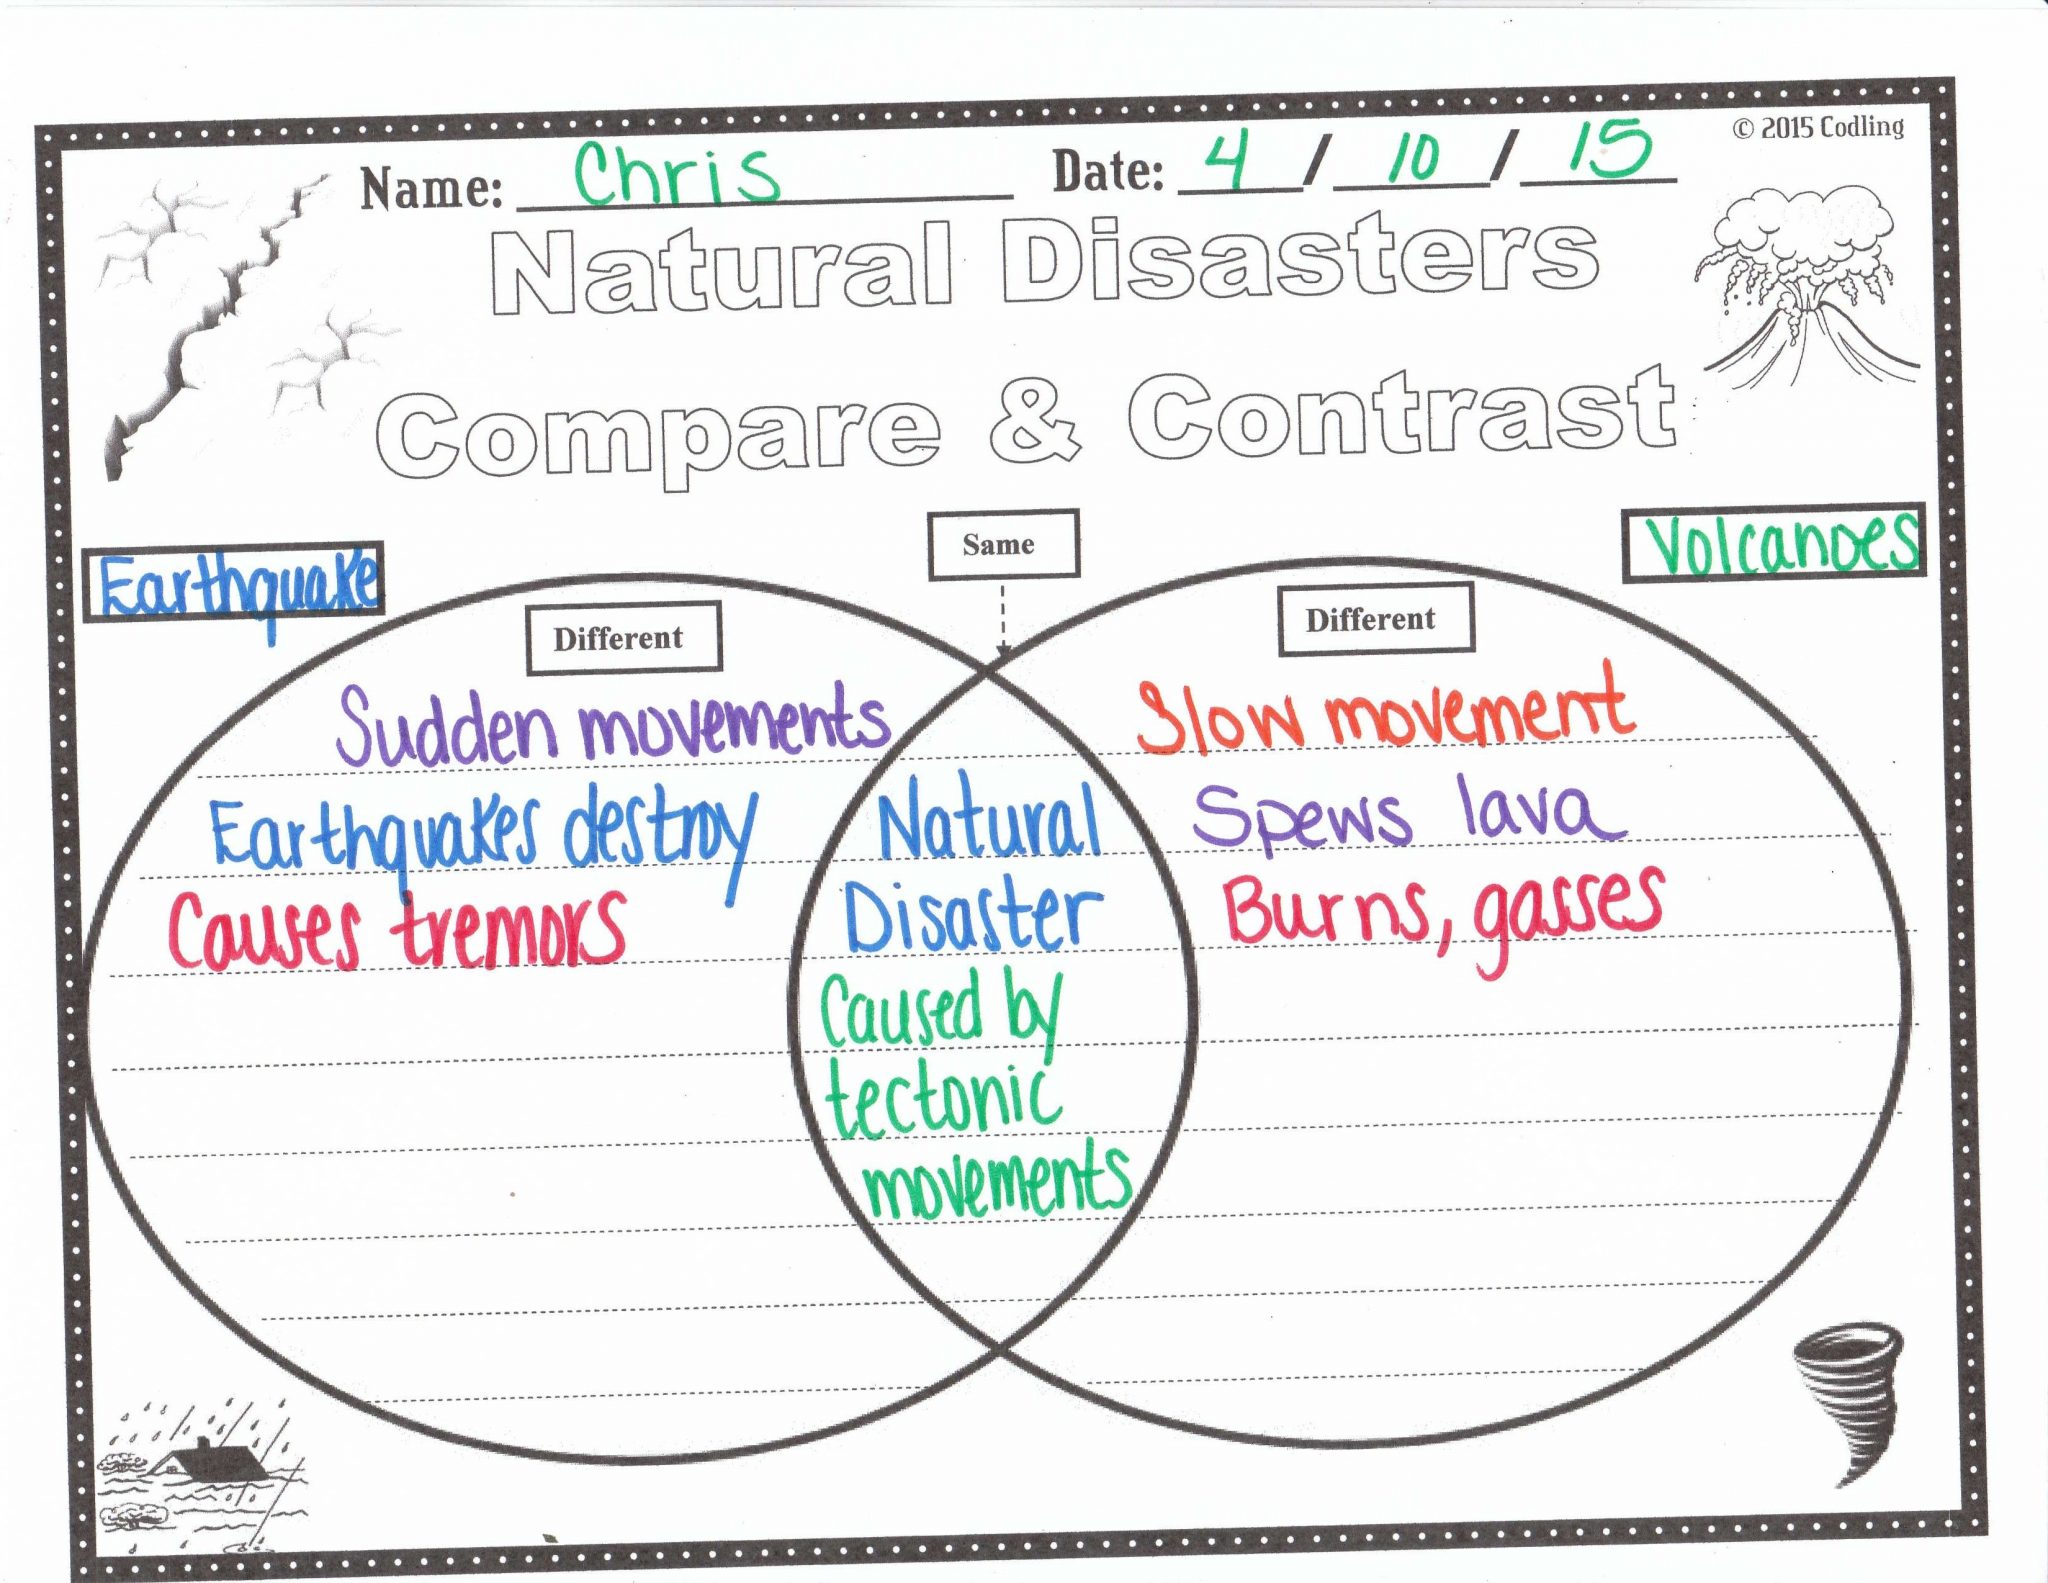 © 2015 Codling
Name: Chris Date: 4 / 10 / 15
Natural Disasters
Compare & Contrast
Earthquake
Same
Volcanoes
Different
Different
Sudden movements
Earthquakes destroy
Causes tremors
Natural
Disaster
Caused by
tectonic
movements
Slow movement
Spews lava
Burns, gasses